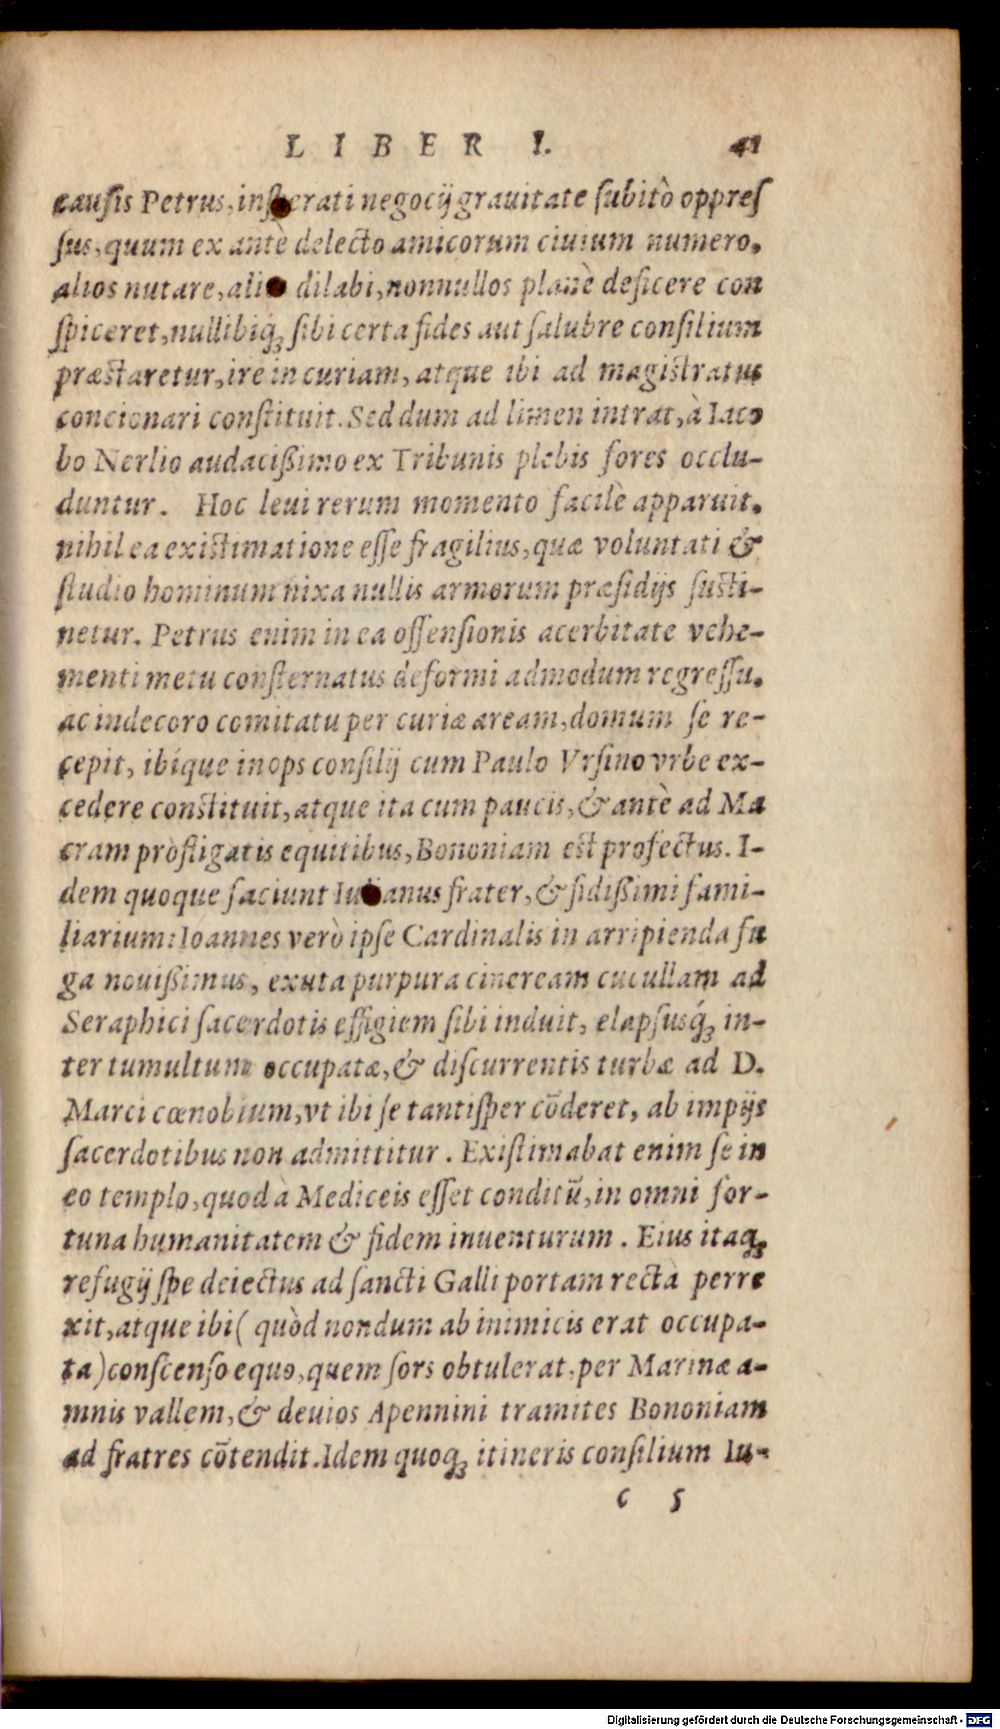 LIBER I. 41
causis Petrus, insperati negocij grauitate subitò oppres
sus, quum ex antè delecto amicorum ciuium numero,
alios nutare, alios dilabi, nonnullos planè deficere con
spiceret, nullibiq́ꝫ sibi certa fides aut salubre consilium
præstaretur, ire in curiam, atque ibi ad magistratus
concionari constituit. Sed dum ad limen intrat, à Iaco
bo Nerlio audacißimo ex Tribunis plebis fores occlu-
duntur. Hoc leui rerum momento facilè apparuit,
nihil ea existimatione esse fragilius, quæ voluntati &
studio hominum nixa nullis armorum præsidijs susti-
netur. Petrus enim in ea offensionis acerbitate vehe-
menti metu consternatus deformi admodum regressu,
ac indecoro comitatu per curiæ aream, domum se re-
cepit, ibíque inops consilij cum Paulo Vrsino vrbe ex-
cedere constituit, atque ita cum paucis, & antè ad Ma
cram pròfligatis equitibus, Bononiam est profectus. I-
dem quoque faciunt Iulianus frater, & fidißimi fami-
liarium: Ioannes verò ipse Cardinalis in arripienda fu
ga nouißimus, exuta purpura cineream cucullam ad
Seraphici sacerdotis effigiem sibi induit, elapsusq́ꝫ in-
ter tumultum occupatæ, & discurrentis turbæ ad D.
Marci cœnobium, vt ibi se tantisper cōderet, ab impijs
sacerdotibus non admittitur. Existimabat enim se in
eo templo, quod à Mediceis esset conditū, in omni for-
tuna humanitatem & fidem inuenturum. Eius itaqꝫ
refugij spe deiectus ad sancti Galli portam rectà perre
xit, atque ibi ( quòd nondum ab inimicis erat occupa-
ta) conscenso equo, quem sors obtulerat, per Marinæ a-
mnis vallem, & deuios Apennini tramites Bononiam
ad fratres cōtendit. Idem quoqꝫ itineris consilium Iu-
c 5
Digitalisierung gefördert durch die Deutsche Forschungsgemeinschaft - DFG